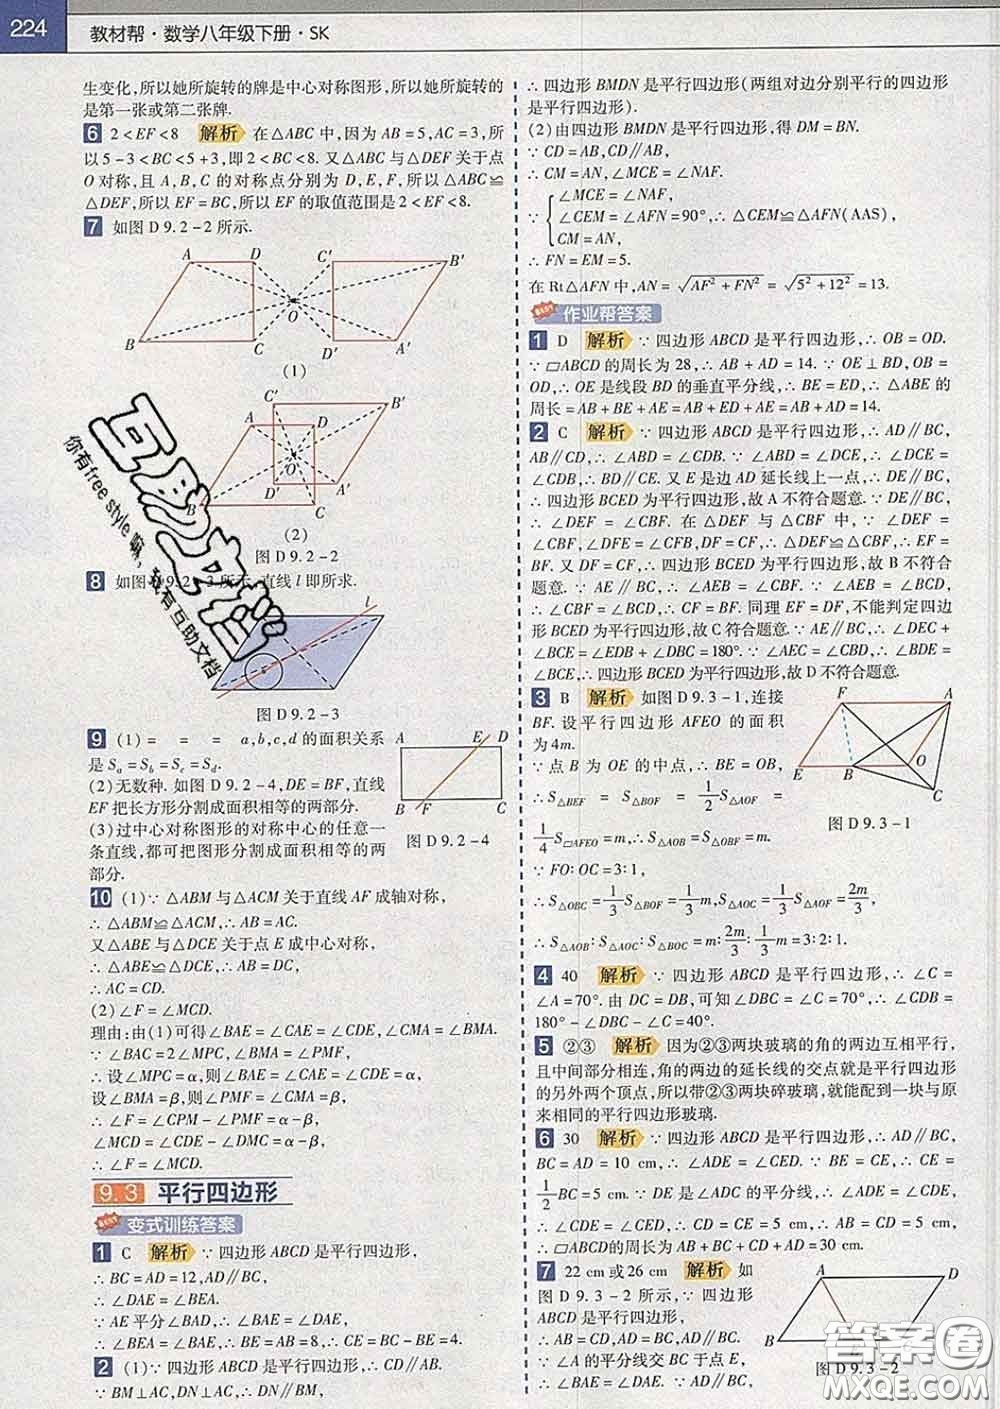 224 教材帮·数学八年级下册·SK
生变化,所以她所旋转的牌是中心对称图形,所以她所旋转的
是第一张或第二张牌.
6 2<EF<8 解析 在△ABC中,因为AB=5,AC=3,所
以5-3<BC<5+3,即2<BC<8.又△ABC与△DEF关于点
O对称,且A,B,C的对称点分别为D,E,F,所以△ABC≌
△DEF,所以EF=BC,所以EF的取值范围是2<EF<8.
7 如图D9.2-2所示.
A D C' B'
O
B C D' A'
(1)
C' B'
A D
O
D' A'
B C
(2)
图D9.2-2
8 如图D9.2-3所示,直线l即所求.
l
图D9.2-3
9 (1)= = = a,b,c,d的面积关系
是Sa=Sb=Sc=Sd.
(2)无数种.如图D9.2-4,DE=BF,直线
EF把长方形分割成面积相等的两部分.
(3)过中心对称图形的对称中心的任意一
条直线,都可把图形分割成面积相等的两
部分.
A E D
B F C
图D9.2-4
10 (1)∵△ABM与△ACM关于直线AF成轴对称,
∴△ABM≌△ACM,∴AB=AC.
又△ABE与△DCE关于点E成中心对称,
∴△ABE≌△DCE,∴AB=DC,
∴AC=CD.
(2)∠F=∠MCD.
理由:由(1)可得∠BAE=∠CAE=∠CDE,∠CMA=∠BMA.
∵∠BAC=2∠MPC,∠BMA=∠PMF,
∴设∠MPC=α,则∠BAE=∠CAE=∠CDE=α,
设∠BMA=β,则∠PMF=∠CMA=β,
∴∠F=∠CPM-∠PMF=α-β,
∠MCD=∠CDE-∠DMC=α-β,
∴∠F=∠MCD.
9.3 平行四边形
变式训练答案
1 C 解析 ∵四边形ABCD是平行四边形,
∴BC=AD=12,AD∥BC,
∴∠DAE=∠BEA.
∵AE平分∠BAD,∴∠BAE=∠DAE,
∴∠BEA=∠BAE,∴BE=AB=8,∴CE=4.
2 (1)∵四边形ABCD是平行四边形,∴CD∥AB.
∵BM⊥AC,DN⊥AC,∴DN∥BM,
∴四边形BMDN是平行四边形(两组对边分别平行的四边形
是平行四边形).
(2)由四边形BMDN是平行四边形,得DM=BN.
∵CD=AB,CD∥AB,
∴CM=AN,∠MCE=∠NAF.
∠MCE=∠NAF,
∵ ∠CEM=∠AFN=90°,∴△CEM≌△AFN(AAS),
CM=AN,
∴FN=EM=5.
在Rt△AFN中,AN=√AF²+FN²=√5²+12²=13.
作业帮答案
1 D 解析 ∵四边形ABCD是平行四边形,∴OB=OD.
∵▱ABCD的周长为28,∴AB+AD=14.∵OE⊥BD,OB=
OD,∴OE是线段BD的垂直平分线,∴BE=ED,∴△ABE的
周长=AB+BE+AE=AB+ED+AE=AB+AD=14.
2 C 解析 ∵四边形ABCD是平行四边形,∴AD∥BC,
AB∥CD,∴∠ABD=∠CDB.∵∠ABD=∠DCE,∴∠DCE=
∠CDB,∴BD∥CE.又E是边AD延长线上一点,∴DE∥BC,
∴四边形BCED为平行四边形,故A不符合题意.∵DE∥BC,
∴∠DEF=∠CBF.在△DEF与△CBF中,∵∠DEF=
∠CBF,∠DFE=∠CFB,DF=CF,∴△DEF≌△CBF,∴EF=
BF.又DF=CF,∴四边形BCED为平行四边形,故B不符合
题意.∵AE∥BC,∴∠AEB=∠CBF.∵∠AEB=∠BCD,
∴∠CBF=∠BCD,∴CF=BF.同理EF=DF,不能判定四边
形BCED为平行四边形,故C符合题意.∵AE∥BC,∴∠DEC+
∠BCE=∠EDB+∠DBC=180°.∵∠AEC=∠CBD,∴∠BDE=
∠BCE,∴四边形BCED为平行四边形,故D不符合题意.
3 B 解析 如图D9.3-1,连接
BF.设平行四边形AFEO的面积
为4m.
∵点B为OE的中点,∴BE=OB,
∴S△BEF=S△BOF=1/2S△AOF=
1/4S▱AFEO=m,∴S△AOB=S△OBF=m.
∵FO:OC=3:1,
∴S△OBC=1/3S△BOF=1/3m,S△AOC=1/3S△AOF=2m/3,
∴S△AOB:S△AOC:S△BOC=m:2m/3:1/3m=3:2:1.
F A
E B O
C
图D9.3-1
4 40 解析 ∵四边形ABCD是平行四边形,∴∠C=
∠A=70°.由DC=DB,可知∠DBC=∠C=70°,∴∠CDB=
180°-∠DBC-∠C=40°.
5 ②③ 解析 因为②③两块玻璃的角的两边互相平行,
且中间部分相连,角的两边的延长线的交点就是平行四边形
的另外两个顶点,所以带②③两块碎玻璃,就能配到一块与原
来相同的平行四边形玻璃.
6 30 解析 ∵四边形ABCD是平行四边形,∴AD∥BC,
BC=AD=10 cm,∴∠ADE=∠CED.∵BE=CE,∴CE=
1/2BC=5 cm.∵DE是∠ADC的平分线,∴∠ADE=∠CDE,
∴∠CDE=∠CED,∴CD=CE=5 cm,∴AB=CD=5 cm,
∴▱ABCD的周长为AB+BC+CD+AD=30 cm.
7 22 cm或26 cm 解析 如
图D9.3-2所示,∵四边形
ABCD是平行四边形,
∴AB=CD,AD=BC,
∵∠A的平分线交BC于点E,
∴∠DAE=∠BAE.∵AD∥BC,
A D
B
图D9.3-2
互助文档
你有free style嘛,我有互助文档
答案圈
MXQE.COM